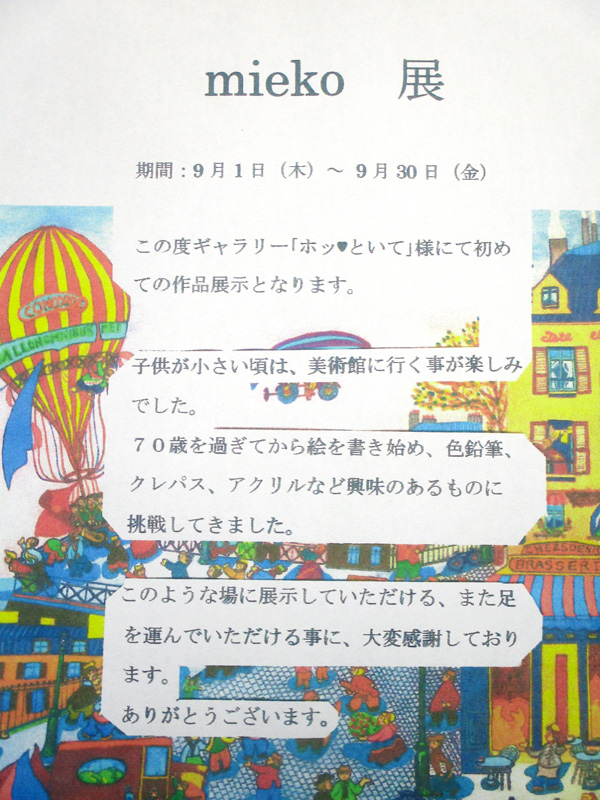 mieko 展
期間：9月1日（木）～ 9月30日（金）
この度ギャラリー「ホッ♥といて」様にて初め
ての作品展示となります。
子供が小さい頃は、美術館に行く事が楽しみ
でした。
７０歳を過ぎてから絵を書き始め、色鉛筆、
クレパス、アクリルなど興味のあるものに
挑戦してきました。
このような場に展示していただける、また足
を運んでいただける事に、大変感謝しており
ます。
ありがとうございます。
BRASSERI